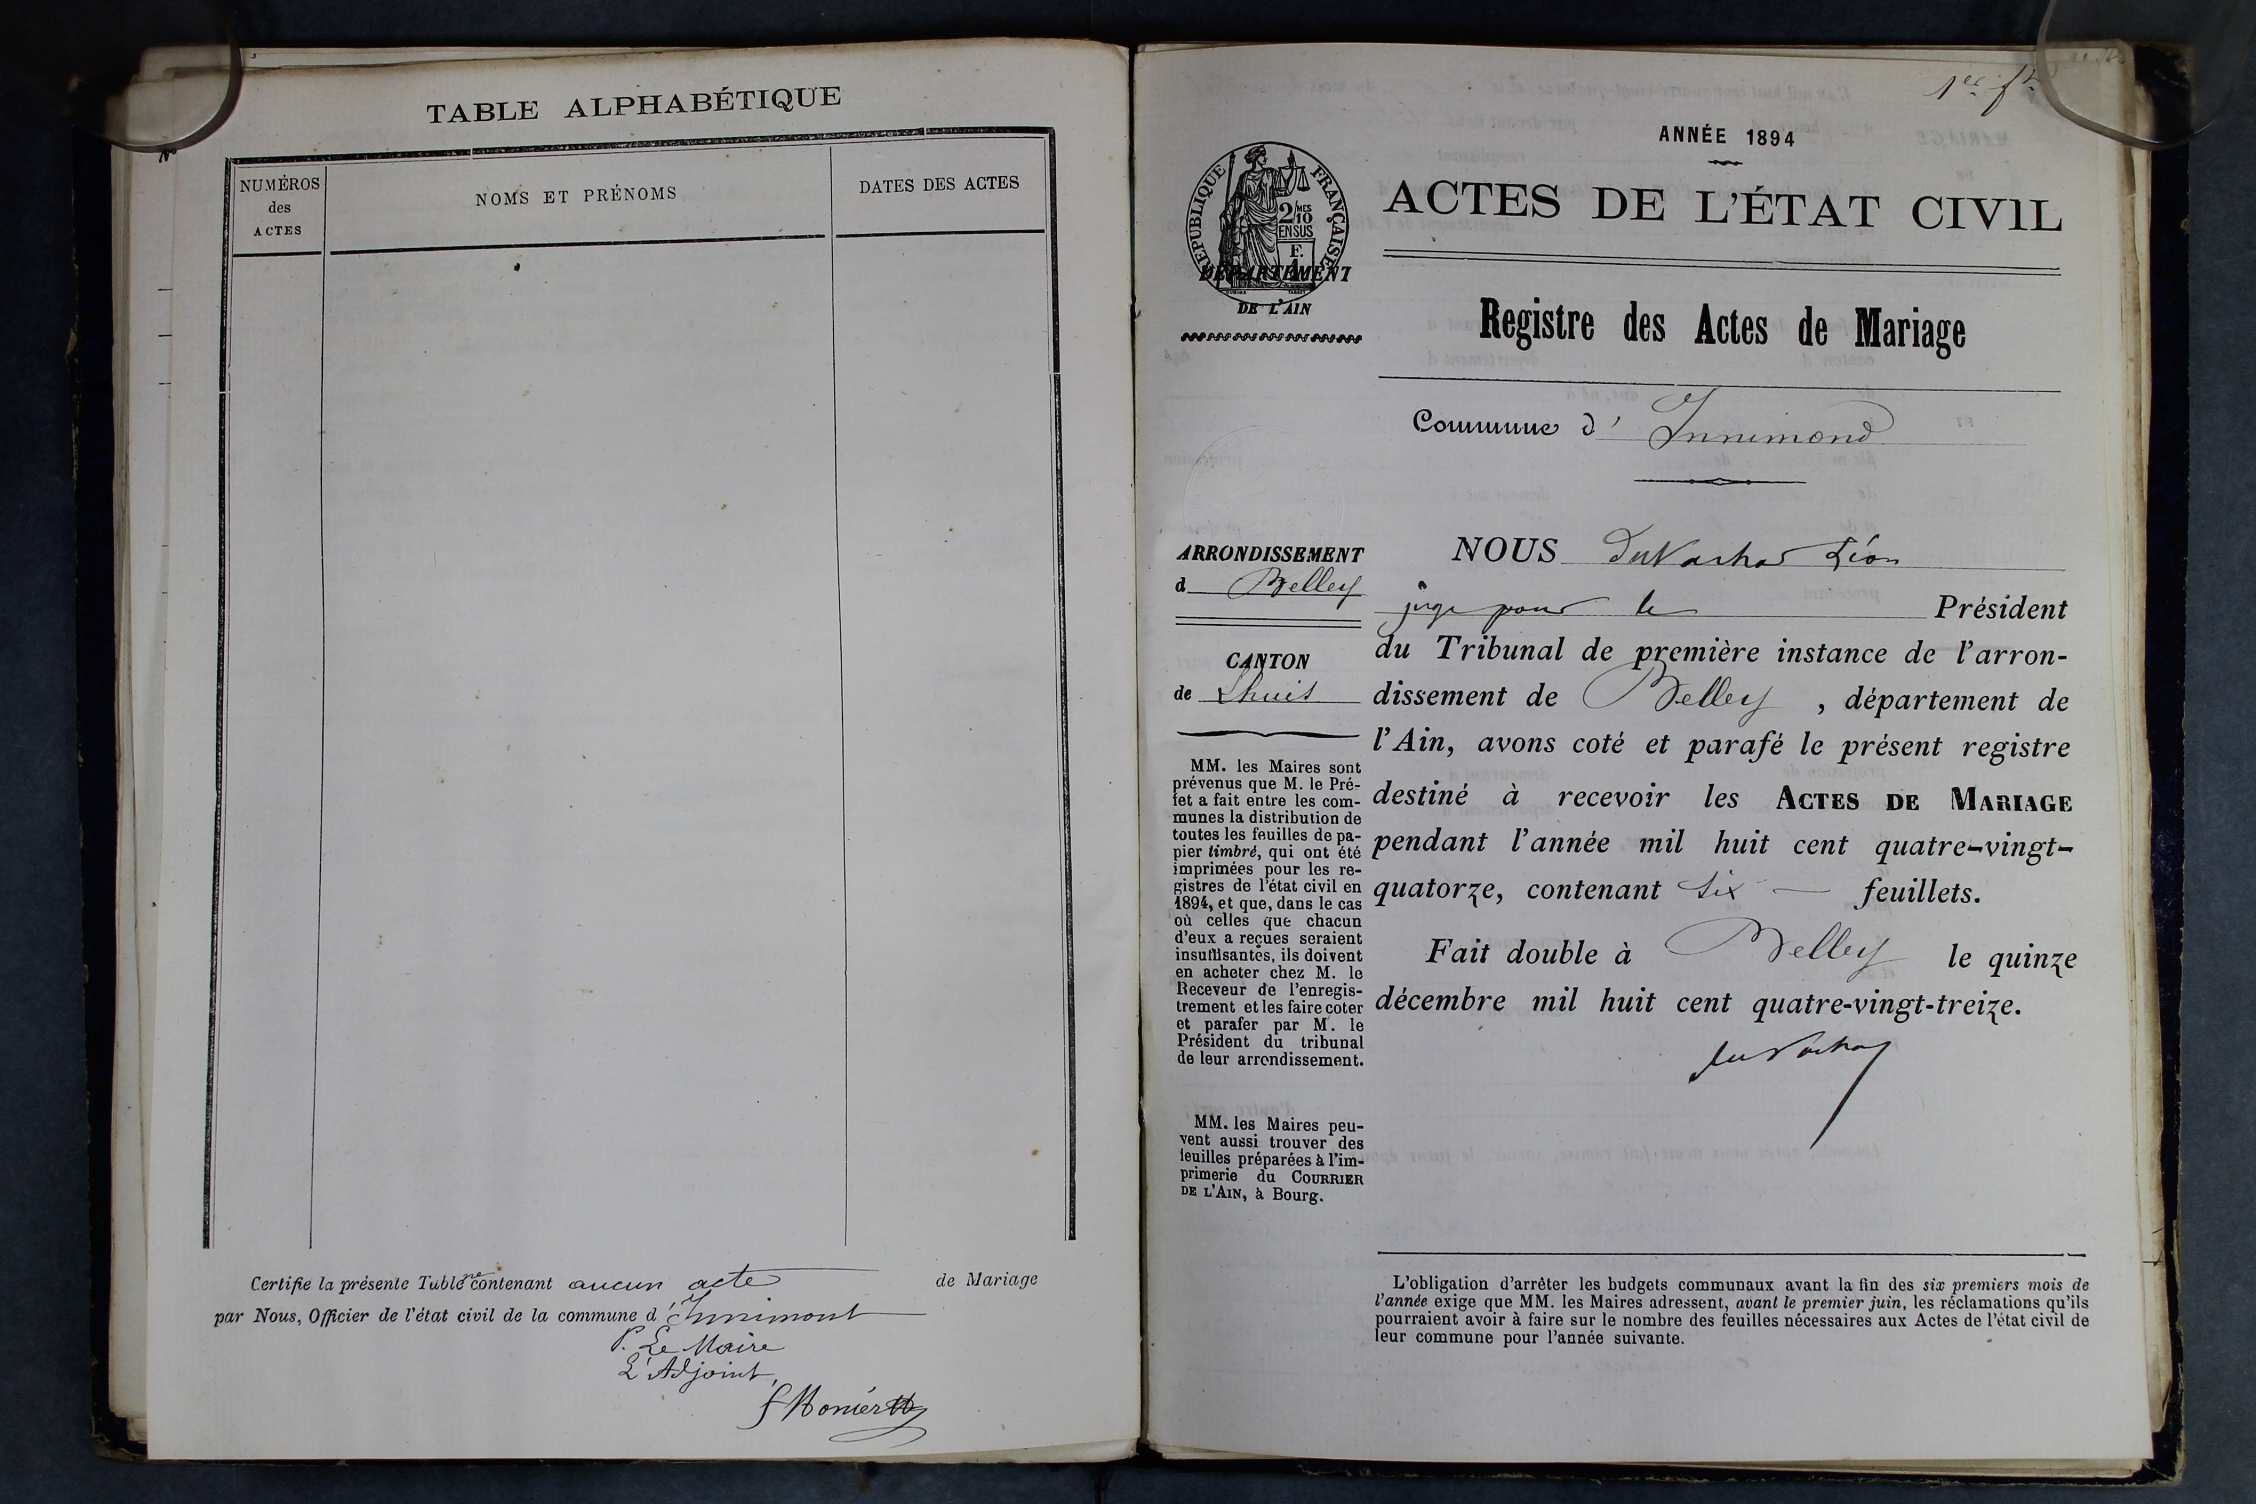 TABLE ALPHABÉTIQUE
NUMÉROS
des
ACTES
NOMS ET PRÉNOMS
DATES DES ACTES
Certifie la présente Table ne contenant aucun acte de Mariage
par Nous, Officier de l'état civil de la commune d'Innimont
P. Le Maire
L'Adjoint,
1er ft
ANNÉE 1894
RÉPUBLIQUE FRANÇAISE
2/10 MES
EN SUS
DÉPARTEMENT
DE L'AIN
ACTES DE L'ÉTAT CIVIL
Registre des Actes de Mariage
Commune d'Innimond
ARRONDISSEMENT
d Belley
CANTON
de Lhuis
MM. les Maires sont
prévenus que M. le Pré-
fet a fait entre les com-
munes la distribution de
toutes les feuilles de pa-
pier timbré, qui ont été
imprimées pour les re-
gistres de l'état civil en
1894, et que, dans le cas
où celles que chacun
d'eux a reçues seraient
insuffisantes, ils doivent
en acheter chez M. le
Receveur de l'enregis-
trement et les faire coter
et parafer par M. le
Président du tribunal
de leur arrondissement.
MM. les Maires peu-
vent aussi trouver des
feuilles préparées à l'im-
primerie du COURRIER
DE L'AIN, à Bourg.
NOUS Léon
juge pour le Président
du Tribunal de première instance de l'arron-
dissement de Belley, département de
l'Ain, avons coté et parafé le présent registre
destiné à recevoir les ACTES DE MARIAGE
pendant l'année mil huit cent quatre-vingt-
quatorze, contenant six feuillets.
Fait double à Belley le quinze
décembre mil huit cent quatre-vingt-treize.
L'obligation d'arrêter les budgets communaux avant la fin des six premiers mois de
l'année exige que MM. les Maires adressent, avant le premier juin, les réclamations qu'ils
pourraient avoir à faire sur le nombre des feuilles nécessaires aux Actes de l'état civil de
leur commune pour l'année suivante.